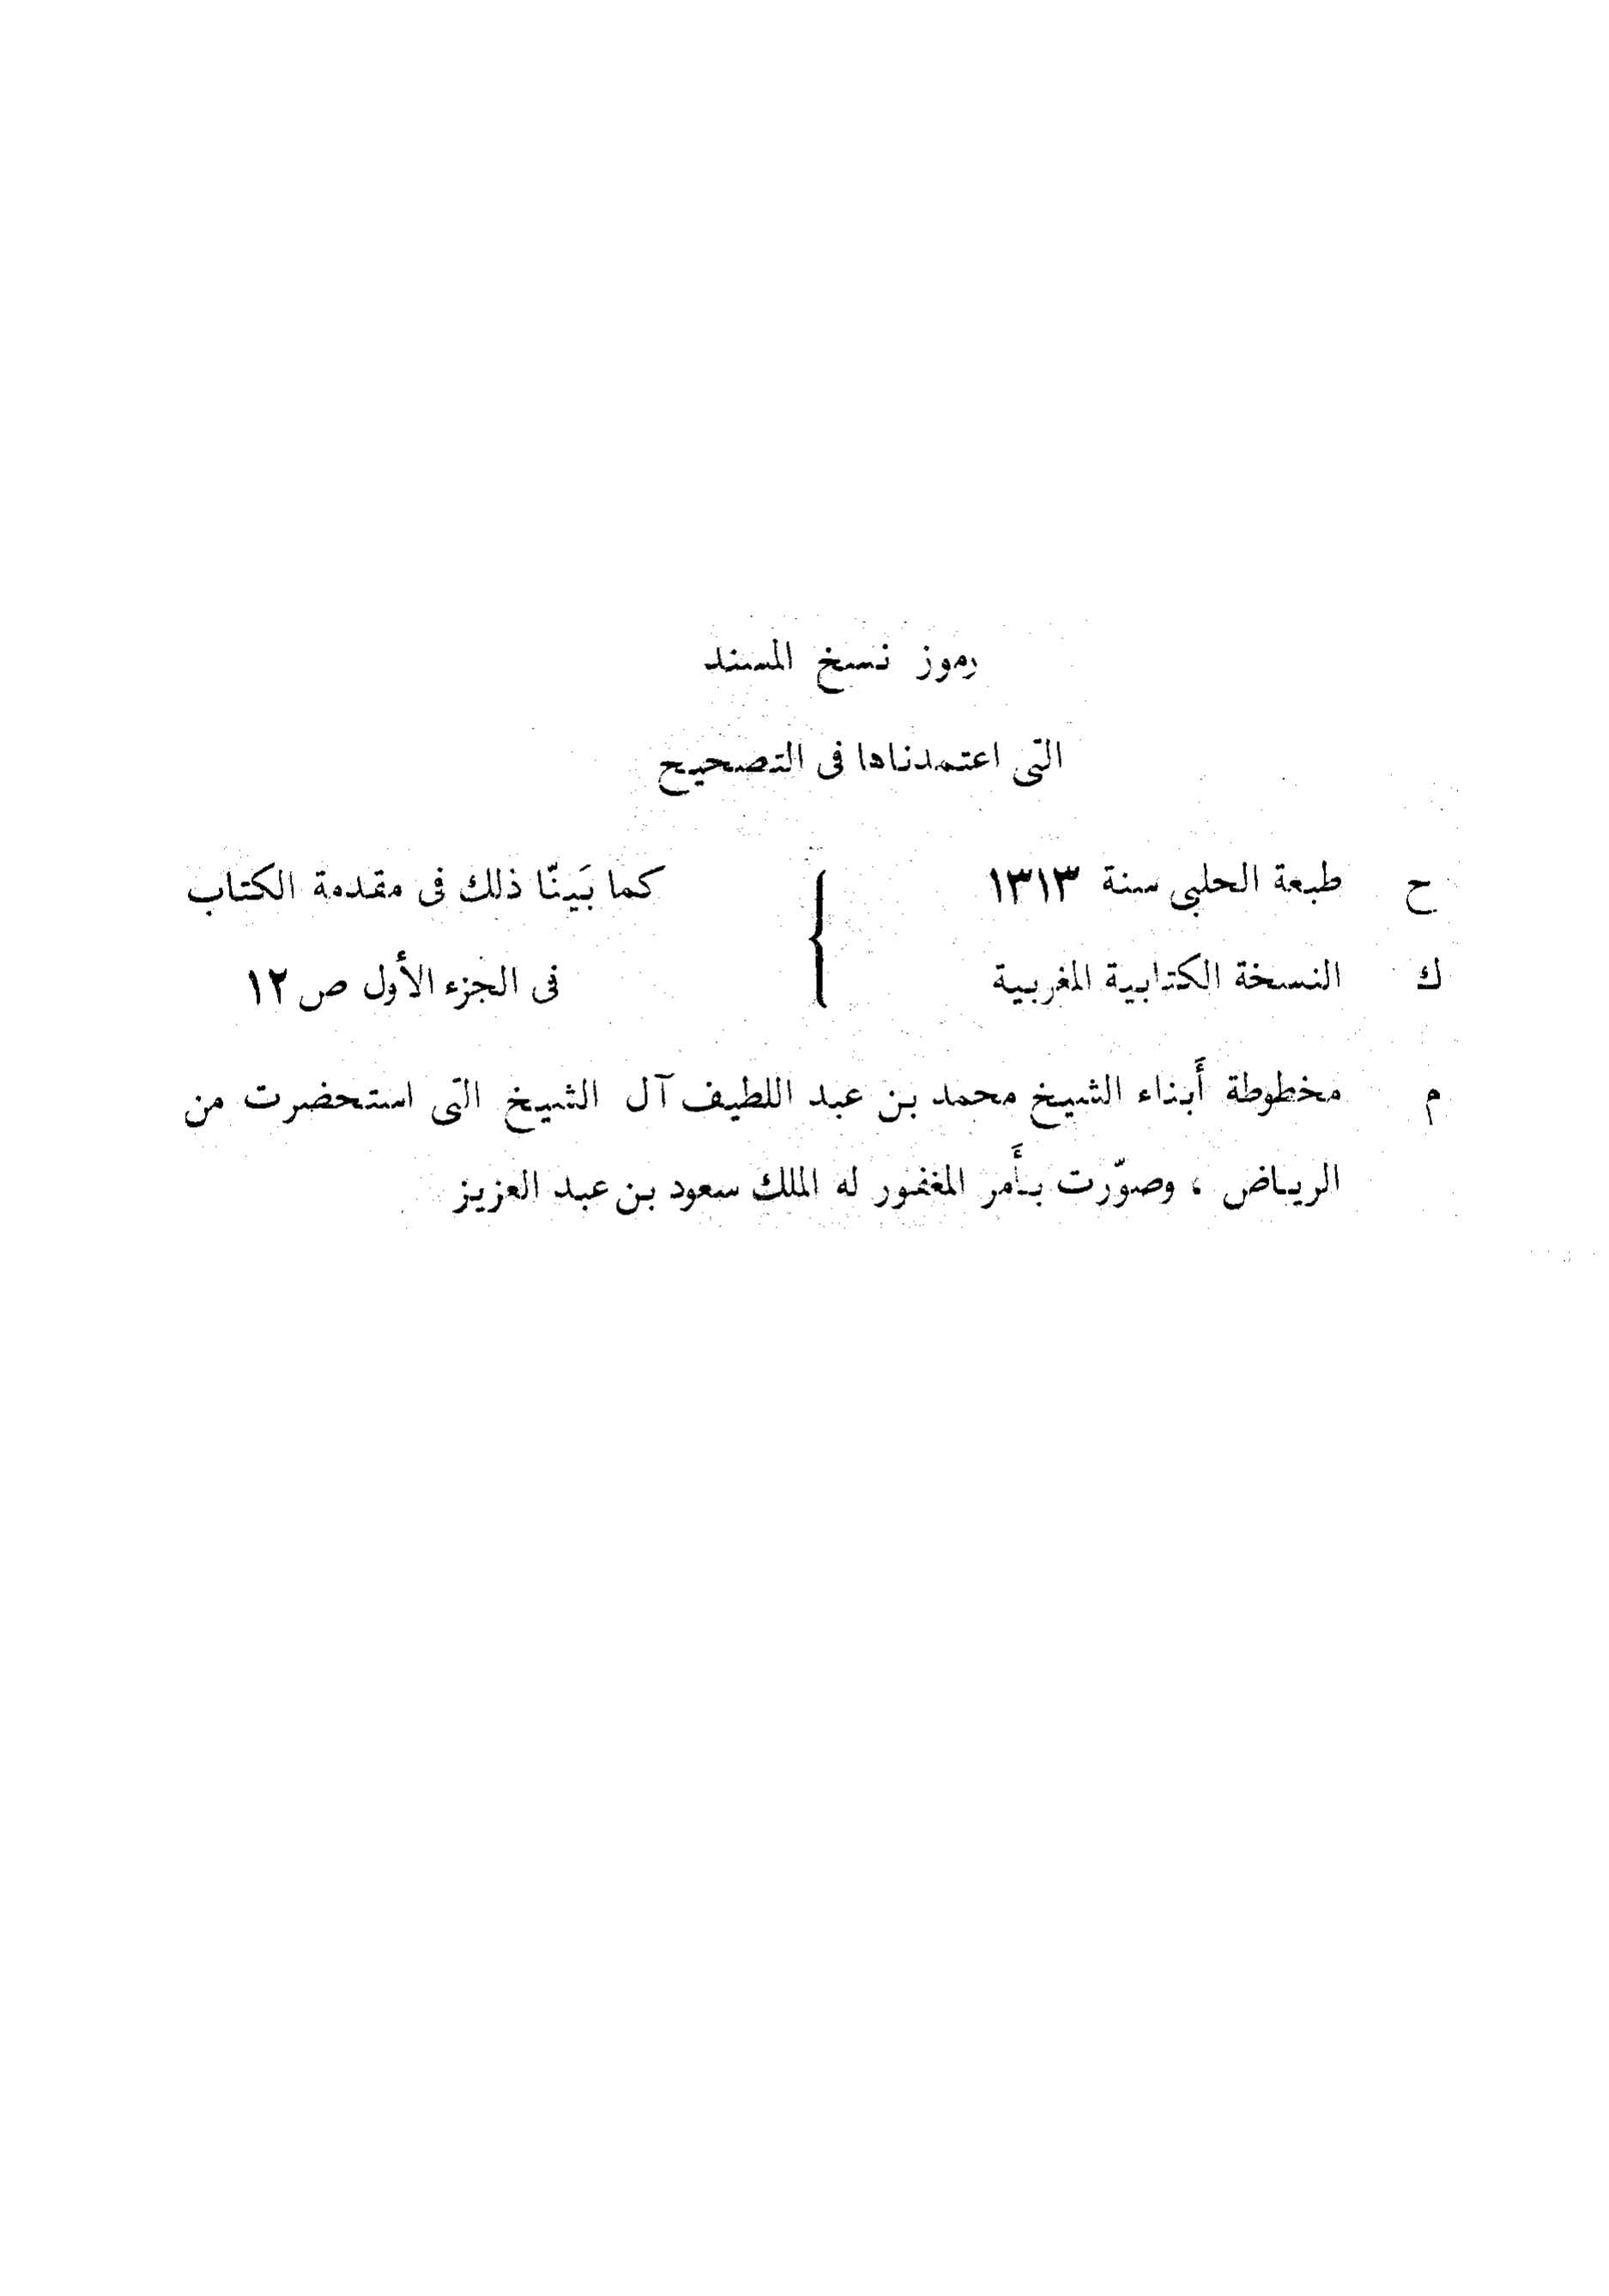 رموز نسخ المسند
التى اعتمدناها فى التصحيح
ح طبعة الحلبى سنة ١٣١٣ { كما بَينّا ذلك فى مقدمة الكتاب
ك النسخة الكتابية المغربية فى الجزء الأول ص ١٢
م مخطوطة أَبناء الشيخ محمد بن عبد اللطيف آل الشيخ التى استحضرت من
الرياض ، وصوّرت بأَمر المغفور له الملك سعود بن عبد العزيز